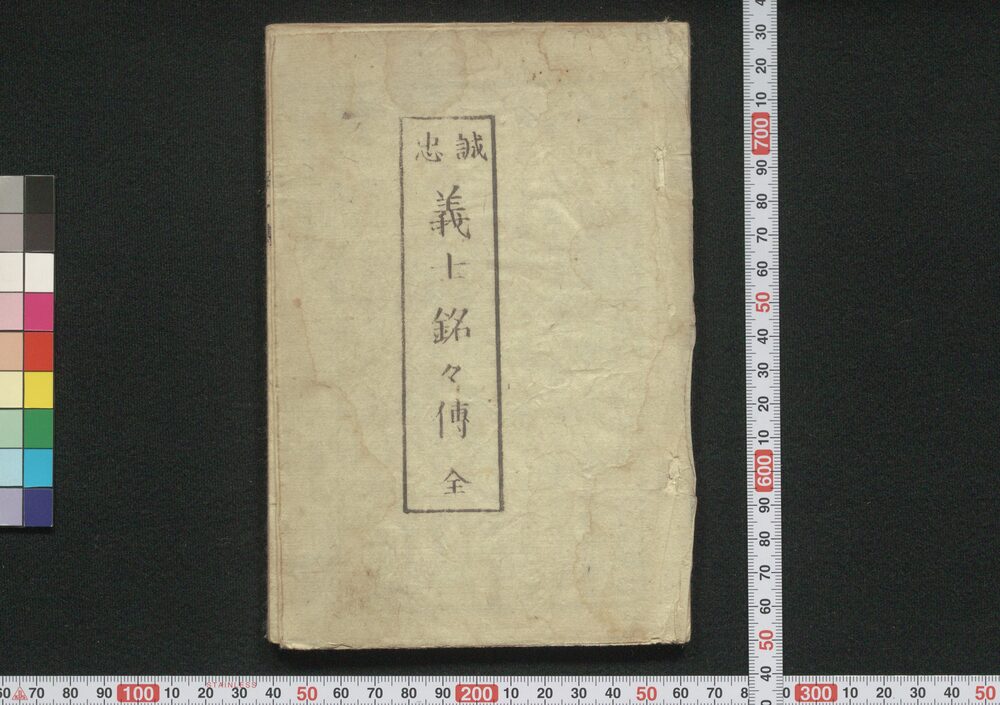 誠忠
義士銘々傳 全
60 70 80 90 100 10 20 30 40 50 60 70 80 90 200 10 20 30 40 50 60 70 8 0 300 10 20 30 40 50
STAINLESS
30 20 10 700 90 80 70 60 50 40 30 20 10 600 90 80 70 60 50 40